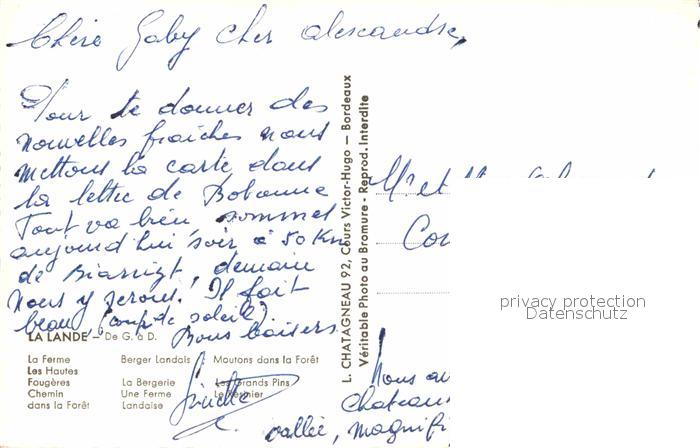 Chère Gaby cher Alexandre,
Pour te donner des
nouvelles fraiches nous
mettons la carte dans
la lettre de Bobonne
Tout va bien sommes
aujourd'hui soir à 50 Km
de Biarrizt, demain
nous y serons. Il fait
beau, (coup de soleil).
Bons baisers.
LA LANDE — De G. à D.
La Ferme Berger Landais Moutons dans la Forêt
Les Hautes
Fougères La Bergerie Les Grands Pins
Chemin Une Ferme Le Résinier
dans la Forêt Landaise
L. CHATAGNEAU 92, Cours Victor-Hugo — Bordeaux
Véritable Photo au Bromure - Reprod. Interdite
Mr et
Co
privacy protection
Datenschutz
Nous av
Chateau
vallée, magnifi